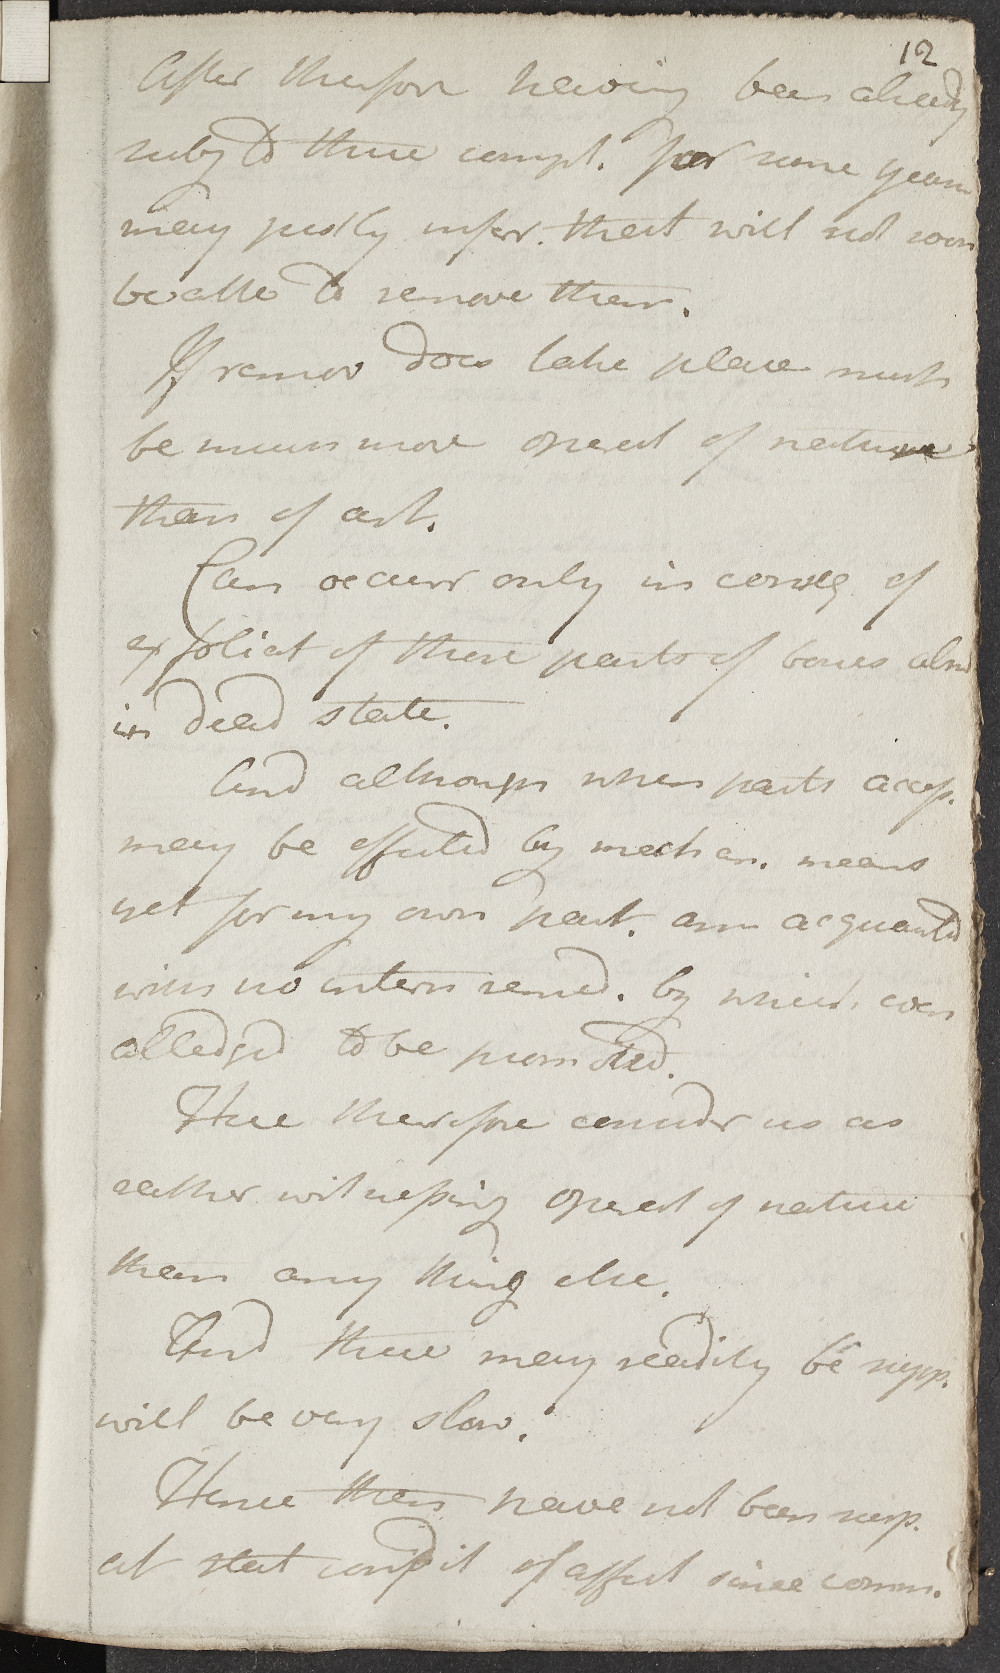 12
After therefore having been already
subj to these compl. for some years
may justly infer. that will not soon
be able to remove them.
If remov does take place must
be much more operat of nature
than of art.
Can occurr only in conseq of
exfoliat of those parts of bones alrd
in dead state.
And although when parts access.
may be effected by mechan. means
yet for my own part. am acquanted
with no intern remed. by which even
alledged to be promoted.
Here therefore consider us as
rather witnessing operat of nature
than any thing else.
And these may readily be supp.
will be very slow.
Hence then have not been surp.
at stat condit of affect since comm.